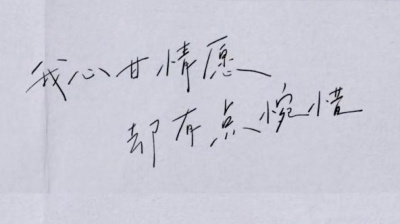 我心甘情愿
却有点惋惜